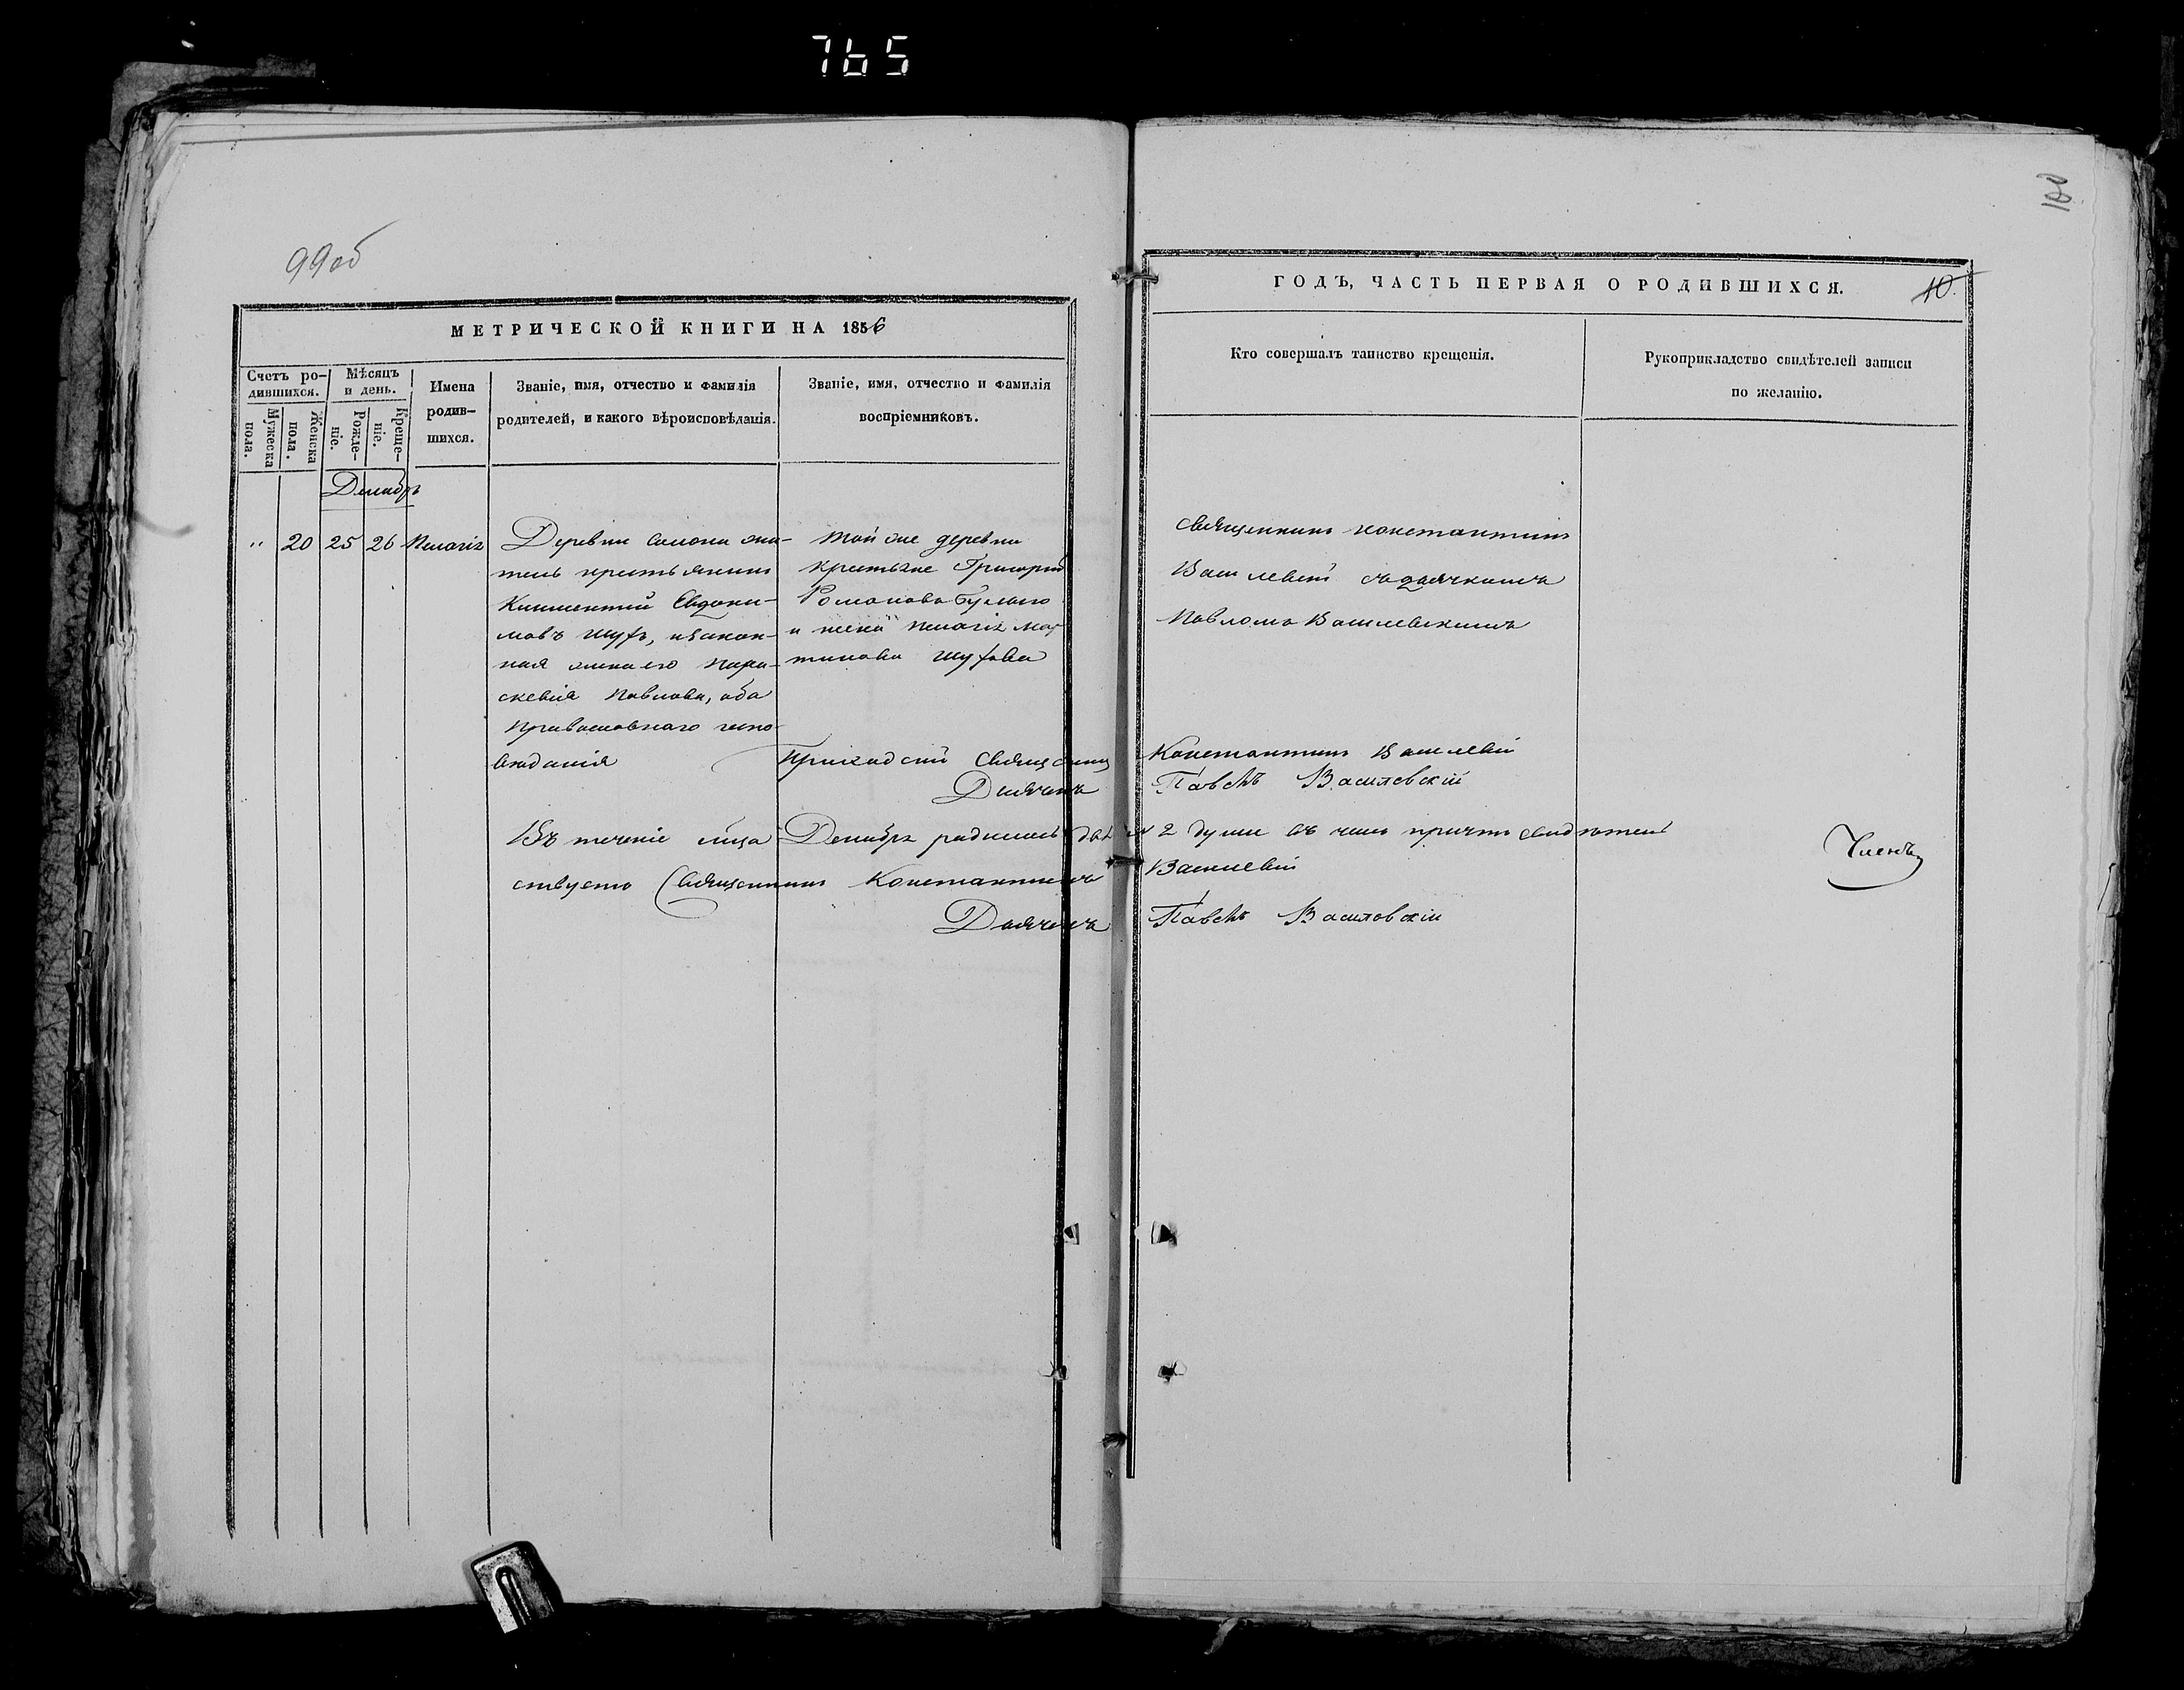 765
99об
100
МЕТРИЧЕСКОЙ КНИГИ НА 1856
ГОДЪ, ЧАСТЬ ПЕРВАЯ О РОДИВШИХСЯ.
10.
Счетъ ро-
дившихся.
Мужеска
пола.
Женска
пола.
Мѣсяцъ
и день.
Рожде-
ніе.
Креще-
ніе.
Имена
родив-
шихся.
Званіе, имя, отчество и фамилія
родителей, и какого вѣроисповѣданія.
Званіе, имя, отчество и фамилія
воспріемниковъ.
Кто совершалъ таинство крещенія.
Рукоприкладство свидѣтелей записи
по желанію.
Декабрь
" 20 25 26 Пелагія
Деревни жи-
тель крестьянинъ
Климентий Евдоки-
мовъ Шуръ, и закон-
ная жена его Пара-
скевія Павлова, оба
Православнаго испо-
вѣданія
Той же деревни
крестьяне Григорій
Романовъ
и Пелагія Мар-
тинова Шурова
Священникъ Константинъ
Василевій съ дьячкомъ
Павломъ Василевскимъ
Приходскій Священникъ Константинъ Василевій
Дьячекъ Павелъ Василевскій
Въ теченіе м̃ца Декабря родилось 2 души въ чемъ причтъ свидѣтель
ствуетъ Священникъ Константинъ Василевій
Дьячекъ Павелъ Василевскій
Членъ